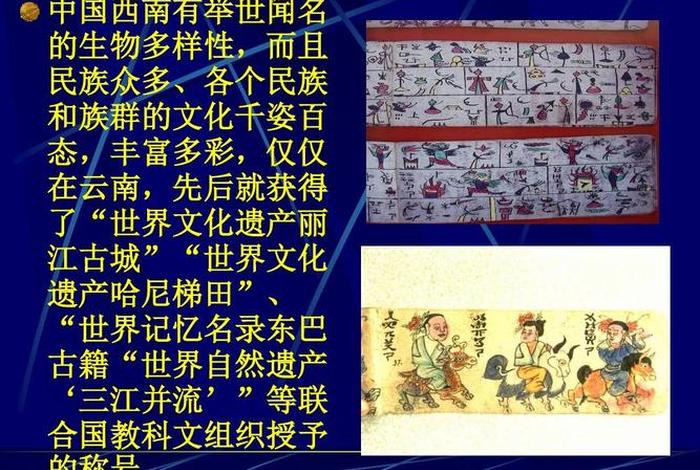 中国西南有举世闻名
的生物多样性，而且
民族众多、各个民族
和族群的文化千姿百
态，丰富多彩，仅仅
在云南，先后就获得
了“世界文化遗产丽
江古城”“世界文化
遗产哈尼梯田”、
“世界记忆名录东巴
古籍“世界自然遗产
‘三江并流’”等联
合国教科文组织授予
的称号